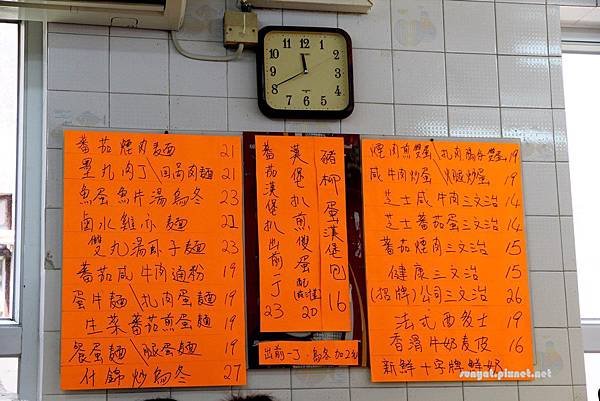 12
1
2
3
4
5
6
7
8
9
10
11
蕃茄煙肉麵 21
墨丸肉丁\回鍋肉麵 21
魚蛋魚片湯烏冬 23
鹵水雞亦麵 21
雙丸湯卧子麵 23
蕃茄咸牛肉通粉 19
蛋牛麵\扎肉蛋麵 19
生菜蕃茄煎蛋麵 19
餐蛋麵\腿蛋麵 19
什錦炒烏冬 27
豬柳蛋漢堡包 16
漢堡扒煎雙蛋 20
蕃茄漢堡扒出前一丁 23
出前一丁.烏冬加2元
煙肉煎雙蛋\扎肉 19
咸牛肉炒蛋\火腿炒蛋 19
芝士咸牛肉三文治 14
芝士蕃茄蛋三文治 14
蕃茄煙肉三文治 15
健康三文治 15
(招牌)公司三文治 26
法式西多士 19
香滑牛奶麥皮 16
新鮮十字牌鮮奶
sunyat.pixnet.net